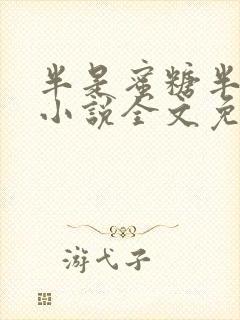 半是蜜糖半
小说全文免
游弋子